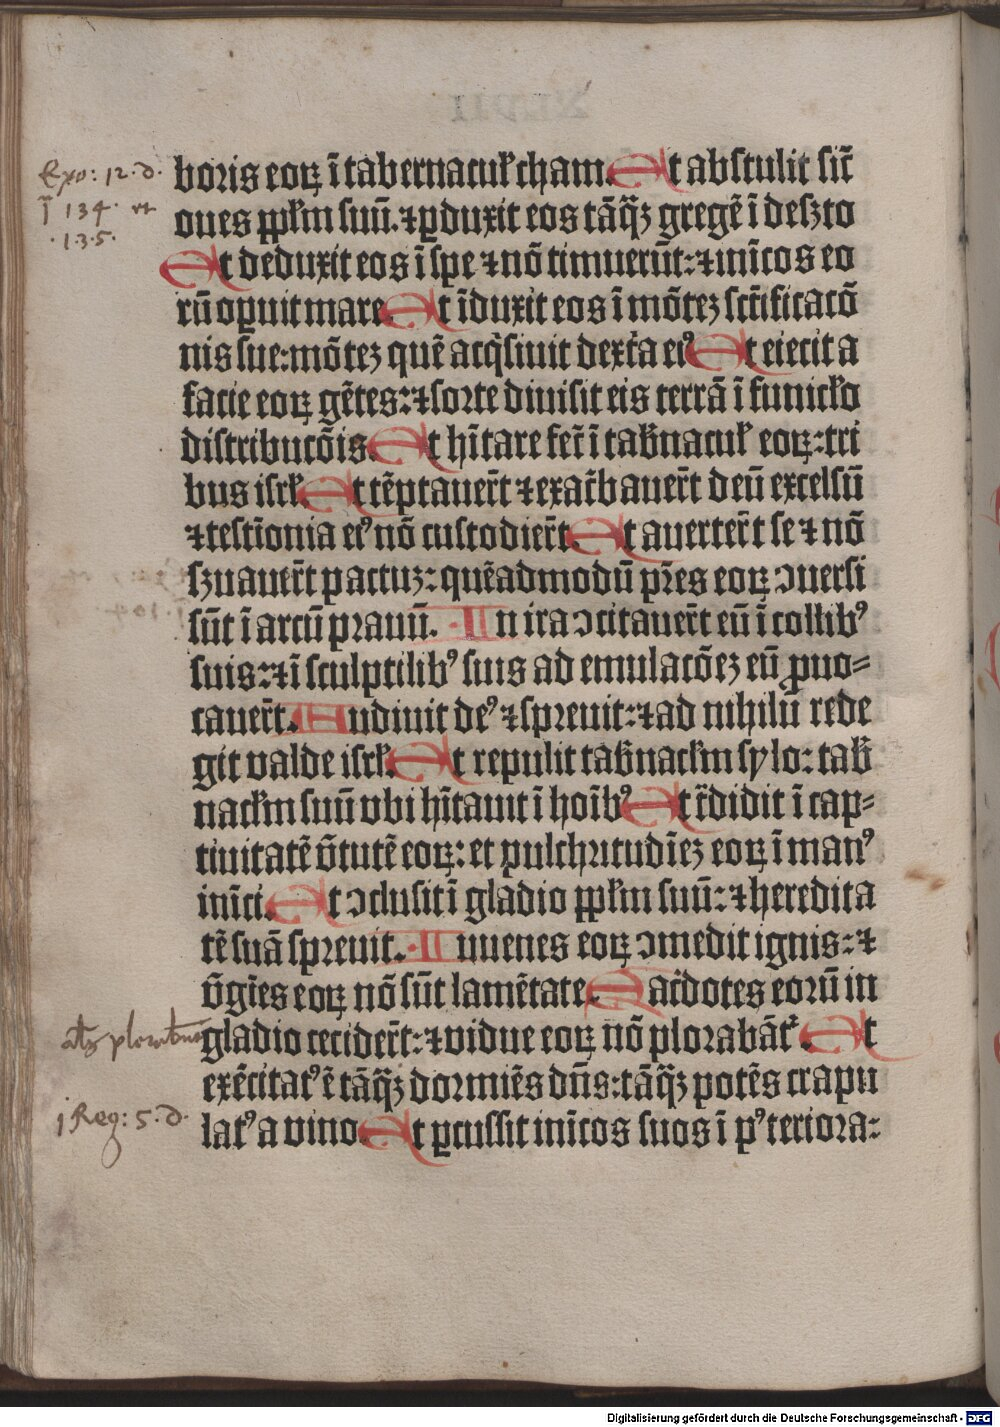 Exo: 12. d.
j 134. et
.1.3.5.
boris eoꝝ ī tabernacul̕ cham. Et abstulit sic̄
oues ppl̕m suū. ⁊ ꝓduxit eos tāq̄ꝫ gregē ī desꝫto
Et deduxit eos ī spe ⁊ nō timuerūt: ⁊ inīcos eo
rū oꝑuit mare. Et īduxit eos ī mōteꝫ scīficacō
nis sue: mōteꝫ quē acq̇siuit dext̄a eiꝰ Et eiecit a
facie eoꝝ gētes: ⁊ sorte diuisit eis terrā ī funicl̕o
distribucōis. Et hītare fec̄ ī tab̄nacul̕ eoꝝ: tri
bus isrl̕. Et tēptauer̄t ⁊ exac̄bauer̄t deū excelsū
⁊ testīonia eiꝰ nō custodier̄t. Et auerter̄t se ⁊ nō
sꝫuauer̄t pactuꝫ: quēadmodū pr̄es eoꝝ ↄuersi
sūt ī arcū prauū. In ira ↄcitauer̄t eū ī collibꝰ
suis: ⁊ ī sculptilibꝰ suis ad emulacōeꝫ eū ꝓuo=
cauer̄t. Audiuit deꝰ ⁊ spreuit: ⁊ ad nihilū rede
git valde isrl̕. Et repulit tab̄nacl̕m sylo: tab̄
nacl̕m suū vbi hītauit ī hoībꝰ Et t̄didit ī cap=
tiuitatē v̄tutē eoꝝ: et pulchritudīeꝫ eoꝝ ī manꝰ
inīci. Et ↄclusit ī gladio ppl̕m suū: ⁊ heredita
tē suā spreuit. Iuuenes eoꝝ ↄmedit ignis: ⁊
v̄gīes eoꝝ nō sūt lamētate. Sac̄dotes eorū in
gladio cecider̄t: ⁊ vidue eoꝝ nō plorabāt᷑. Et
al̕s plorabunt
exc̄itatꝰ ē tāq̄ꝫ dormiēs dn̄s: tāq̄ꝫ potēs crapu
j Reg: 5. d.
latꝰ a vino. Et ꝑcussit inīcos suos ī pꝰteriora:
Digitalisierung gefördert durch die Deutsche Forschungsgemeinschaft - DFG